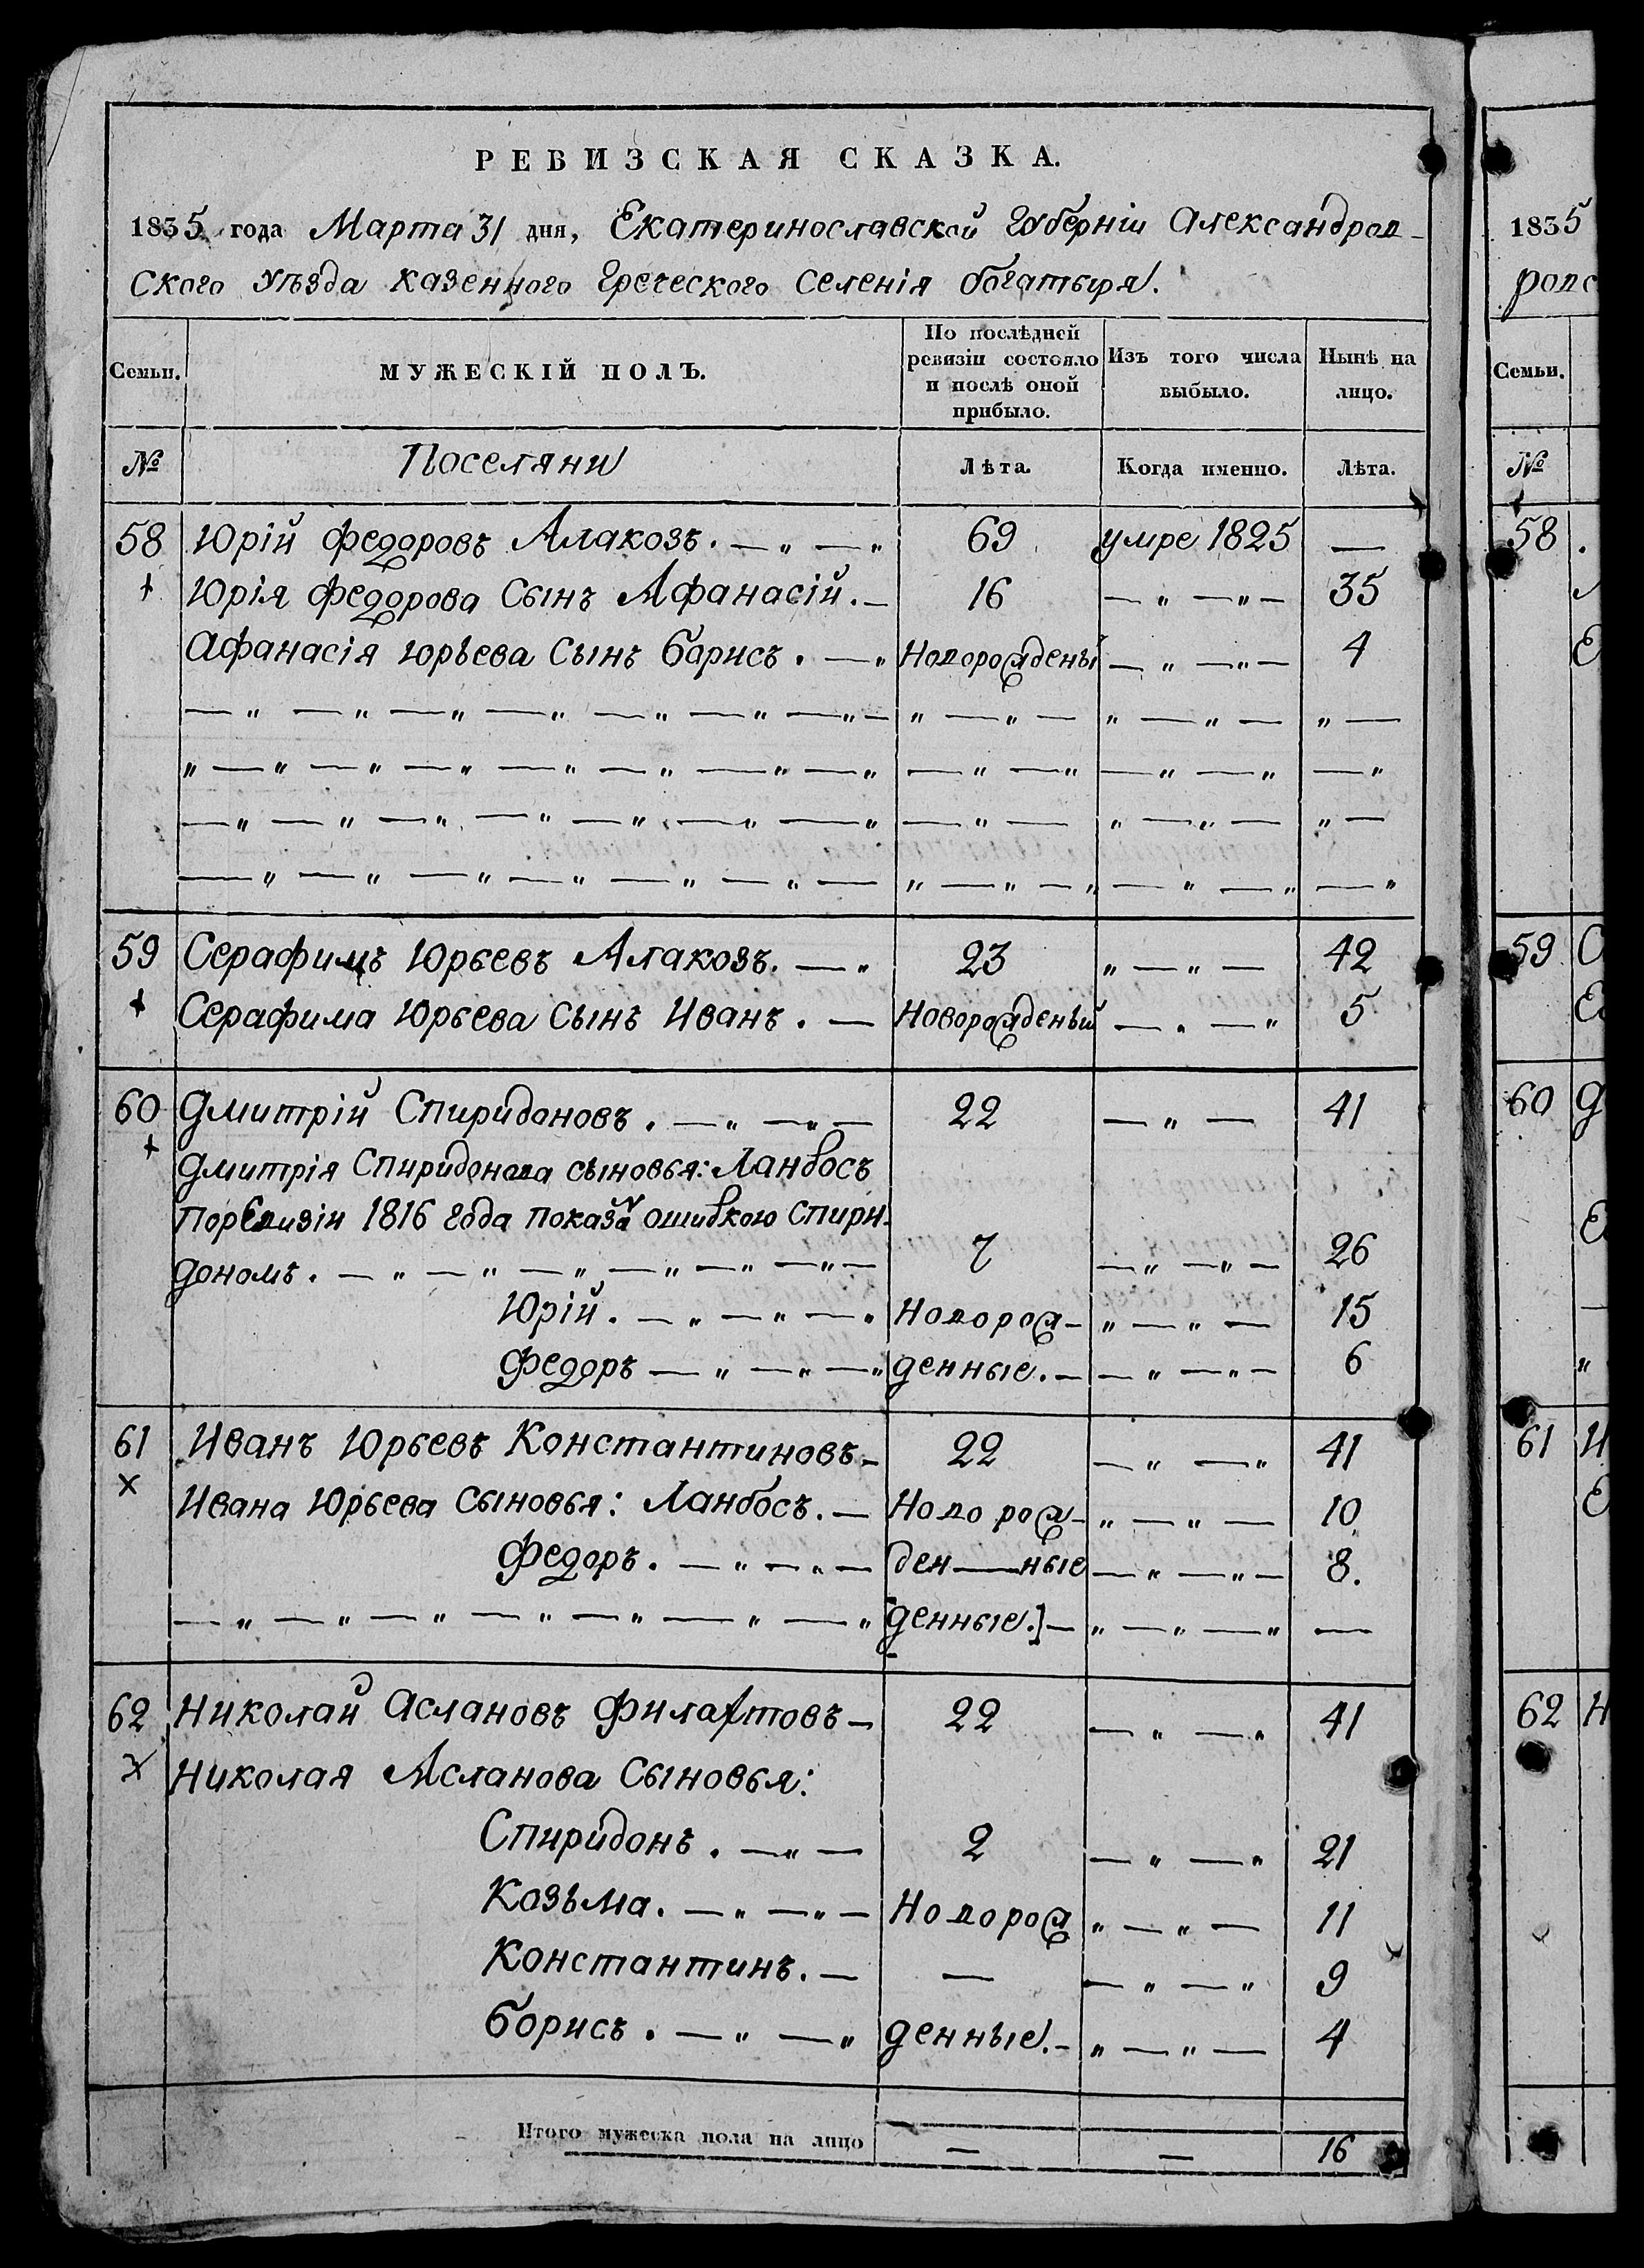 РЕВИЗСКАЯ СКАЗКА.
1835 года Марта 31 дня, Екатеринославской Губерніи Александров-
ского Уѣзда казенного Греческого Селенія богатыря.
Семьи. МУЖЕСКІЙ ПОЛЪ. По послѣдней ревизіи состояло и послѣ оной прибыло. Изъ того числа выбыло. Нынѣ на лицо.
№ Поселяни Лѣта. Когда именно. Лѣта.
58 Юрій Федоровъ Алакозъ. 69 умре 1825 —
Юрія Федорова Сынъ Афанасій. 16 — 35
Афанасія Юрьева Сынъ барисъ. Новорожденый — 4
59 Серафимъ Юрьевъ Алакозъ. 23 — 42
Серафима Юрьева Сынъ Иванъ. Новорожденый — 5
60 Дмитрій Спиридоновъ. 22 — 41
Дмитрія Спиридонова сыновья: Ланбосъ
поревизіи 1816 года показа ошибкою Спири-
дономъ. 7 — 26
Юрій. Новорож- — 15
Федоръ денные. — 6
61 Иванъ Юрьевъ Константиновъ 22 — 41
Ивана Юрьева Сыновья: Ланбосъ. Новорож- — 10
Федоръ. ден—ные — 8.
[денные.] — —
62 Николай Аслановъ 22 — 41
Николая Асланова Сыновья:
Спиридонъ. 2 — 21
Козьма. Новорож — 11
Константинъ. — — 9
борисъ. денные. — 4
Итого мужеска пола на лицо — — 16
1835
ровс
Семьи.
№
58
59 С
60 Д
61 И
62 Н